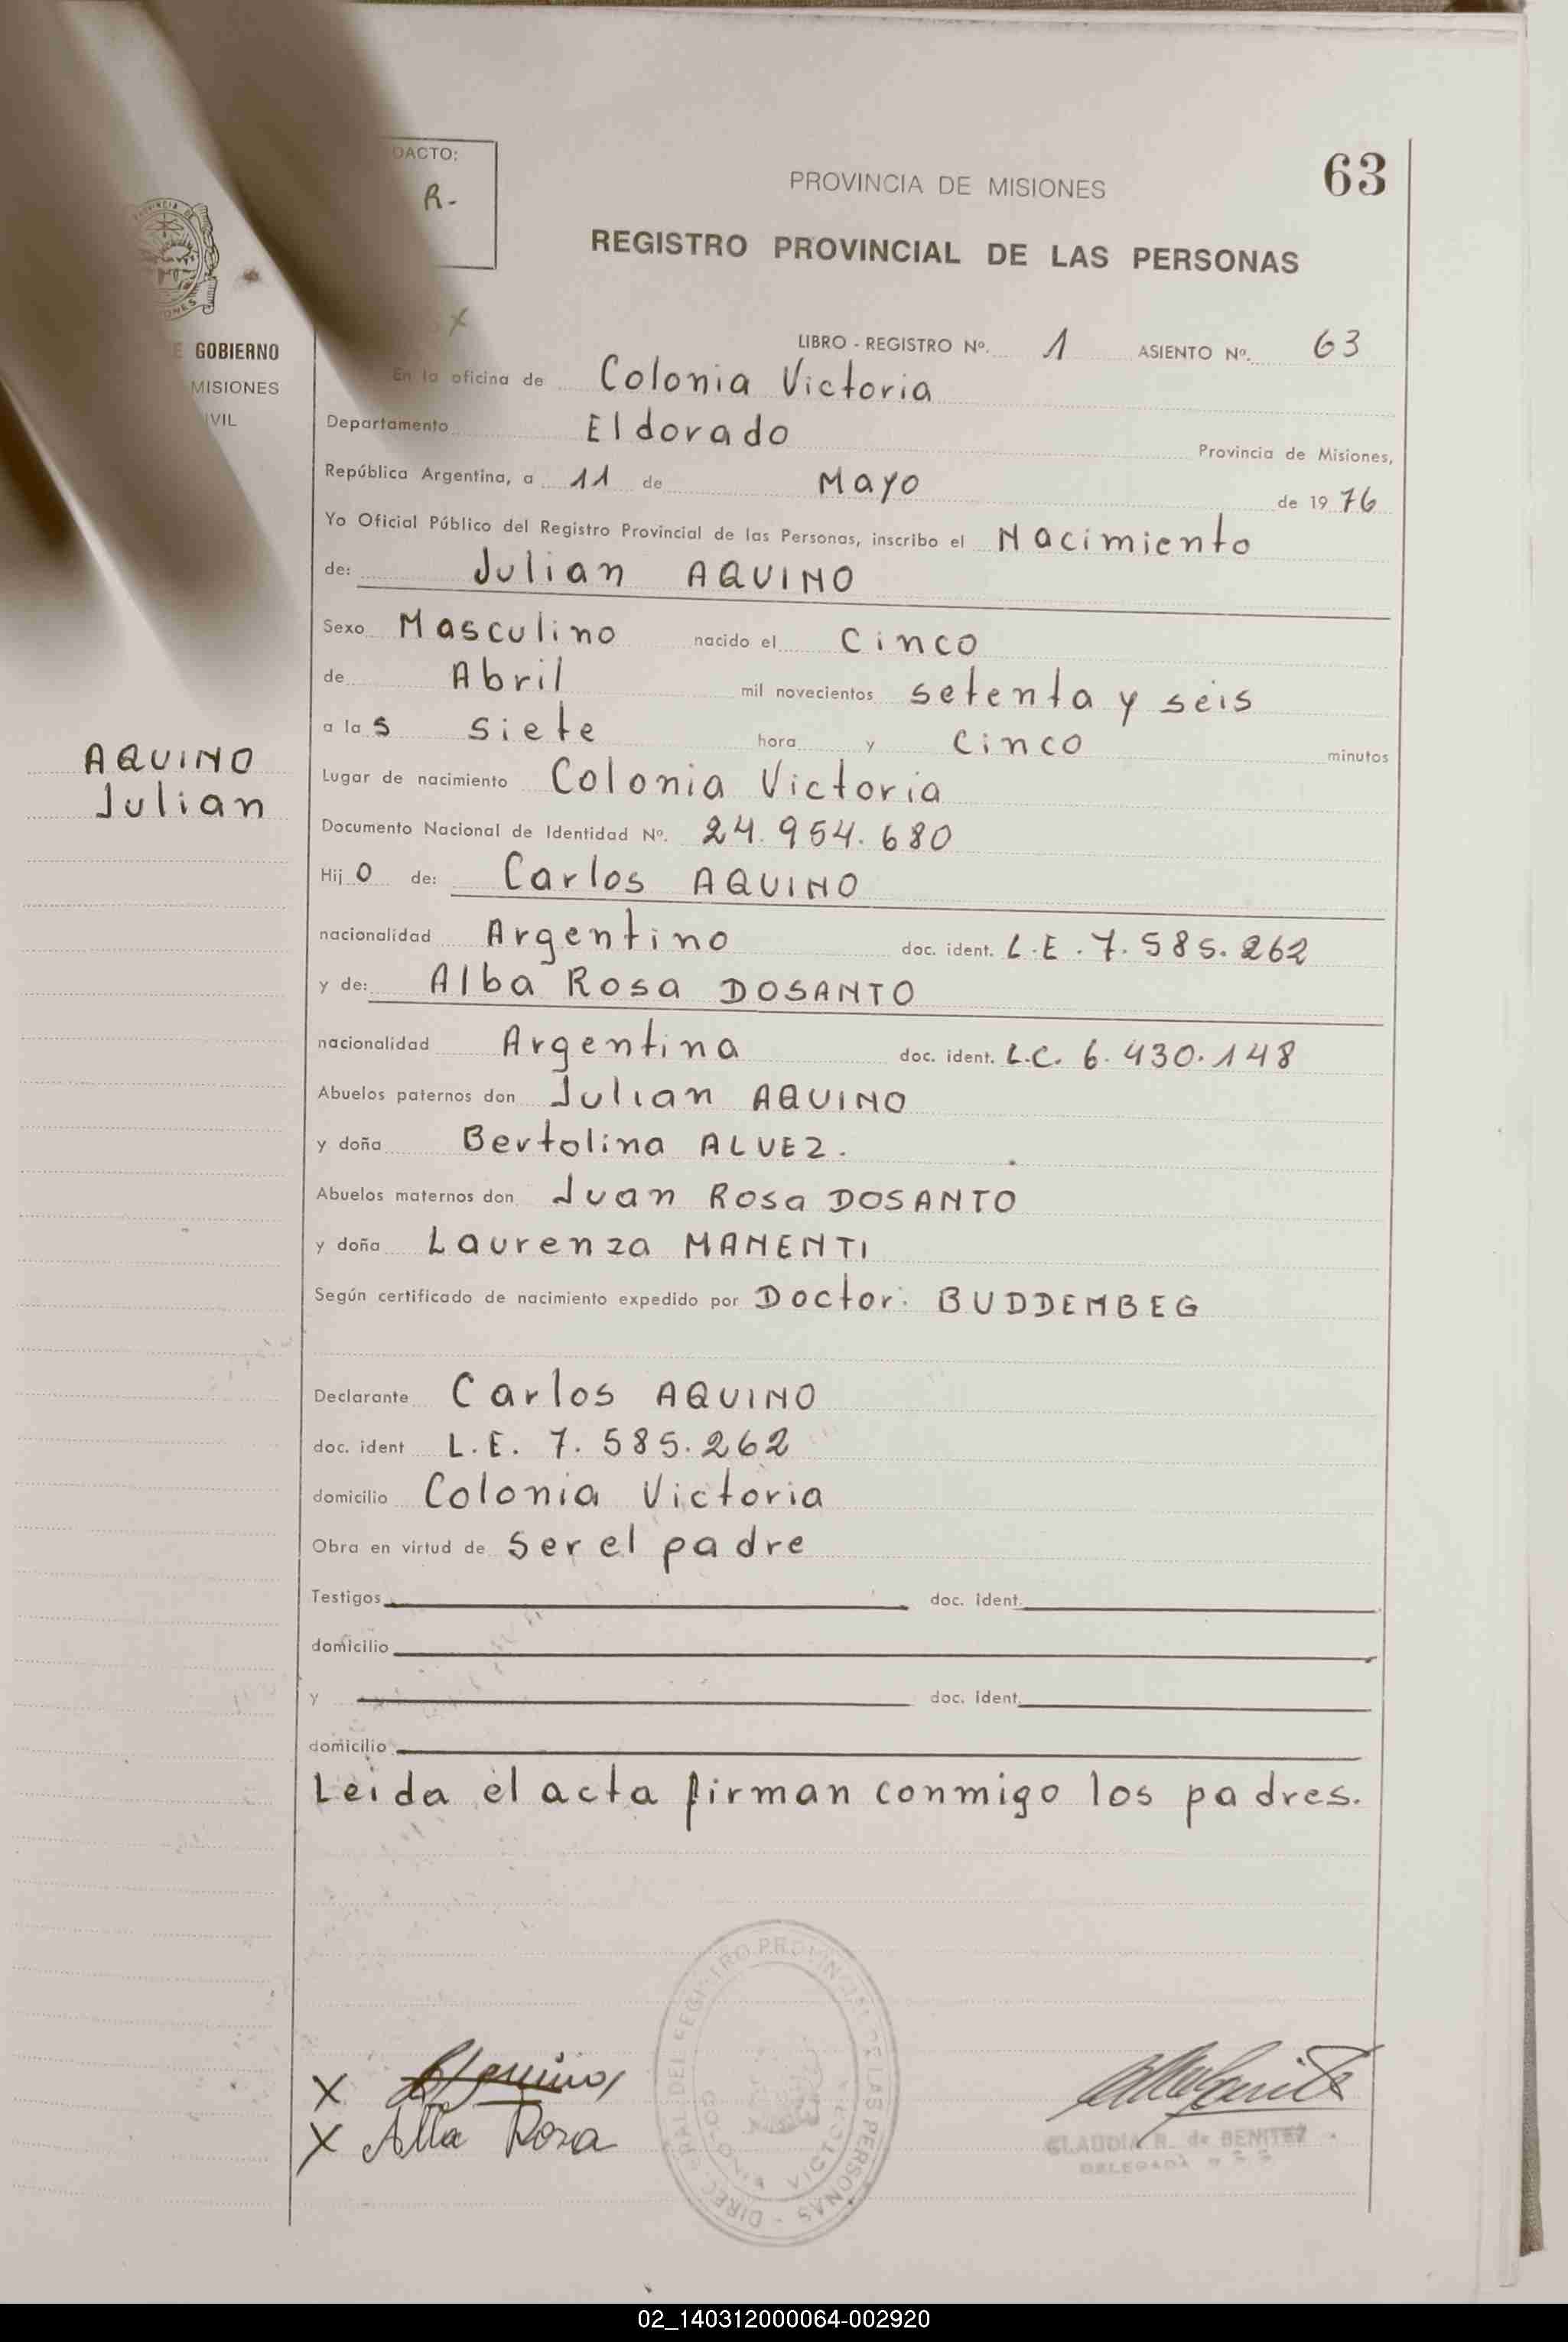 DACTO:
R-
PROVINCIA DE MISIONES
63
REGISTRO PROVINCIAL DE LAS PERSONAS
X
GOBIERNO
MISIONES
IVIL
LIBRO - REGISTRO Nº. 1 ASIENTO Nº. 63
En la oficina de Colonia Victoria
Departamento Eldorado Provincia de Misiones,
República Argentina, a 11 de Mayo de 19 76
Yo Oficial Público del Registro Provincial de las Personas, inscribo el Nacimiento
de: Julian AQUINO
Sexo Masculino nacido el Cinco
de Abril mil novecientos setenta y seis
a la s siete hora y cinco minutos
AQUINO
Julian
Lugar de nacimiento Colonia Victoria
Documento Nacional de Identidad Nº. 24.954.680
Hij o de: Carlos AQUINO
nacionalidad Argentino doc. ident. L.E. 7.585.262
y de: Alba Rosa DOSANTO
nacionalidad Argentina doc. ident. L.C. 6.430.148
Abuelos paternos don Julian AQUINO
y doña Bertolina ALVEZ.
Abuelos maternos don Juan Rosa DOSANTO
y doña Laurenza MANENTI
Según certificado de nacimiento expedido por Doctor: BUDDEMBEG
Declarante Carlos AQUINO
doc. ident L.E. 7.585.262
domicilio Colonia Victoria
Obra en virtud de ser el padre
Testigos doc. ident.
domicilio
y doc. ident.
domicilio
Leida el acta firman conmigo los padres.
X
X Alba Rosa
DIREC. GRAL DEL REGISTRO PROVINCIAL DE LAS PERSONAS
VICTORIA
CLAUDIA R. de BENITEZ
DELEGADA
02_140312000064-002920